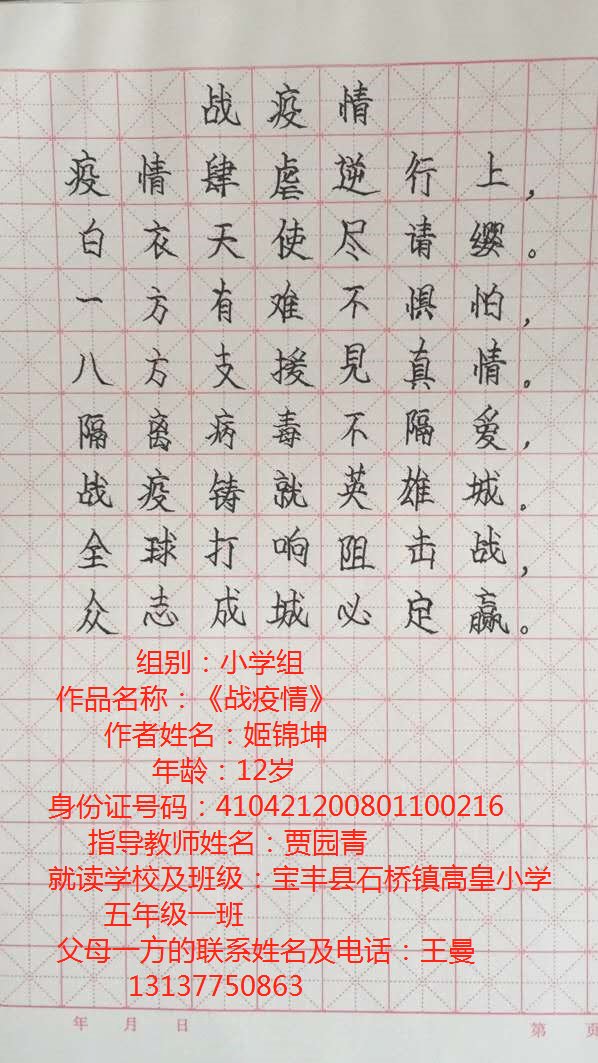 战疫情
疫情肆虐逆行上，
白衣天使尽请缨。
一方有难不惧怕，
八方支援見真情。
隔离病毒不隔爱，
战疫铸就英雄城。
全球打响阻击战，
众志成城必定赢。
组别：小学组
作品名称：《战疫情》
作者姓名：姬锦坤
年龄：12岁
身份证号码：410421200801100216
指导教师姓名：贾园青
就读学校及班级：宝丰县石桥镇高皇小学
五年级一班
父母一方的联系姓名及电话：王曼
13137750863
年 月 日
第 页